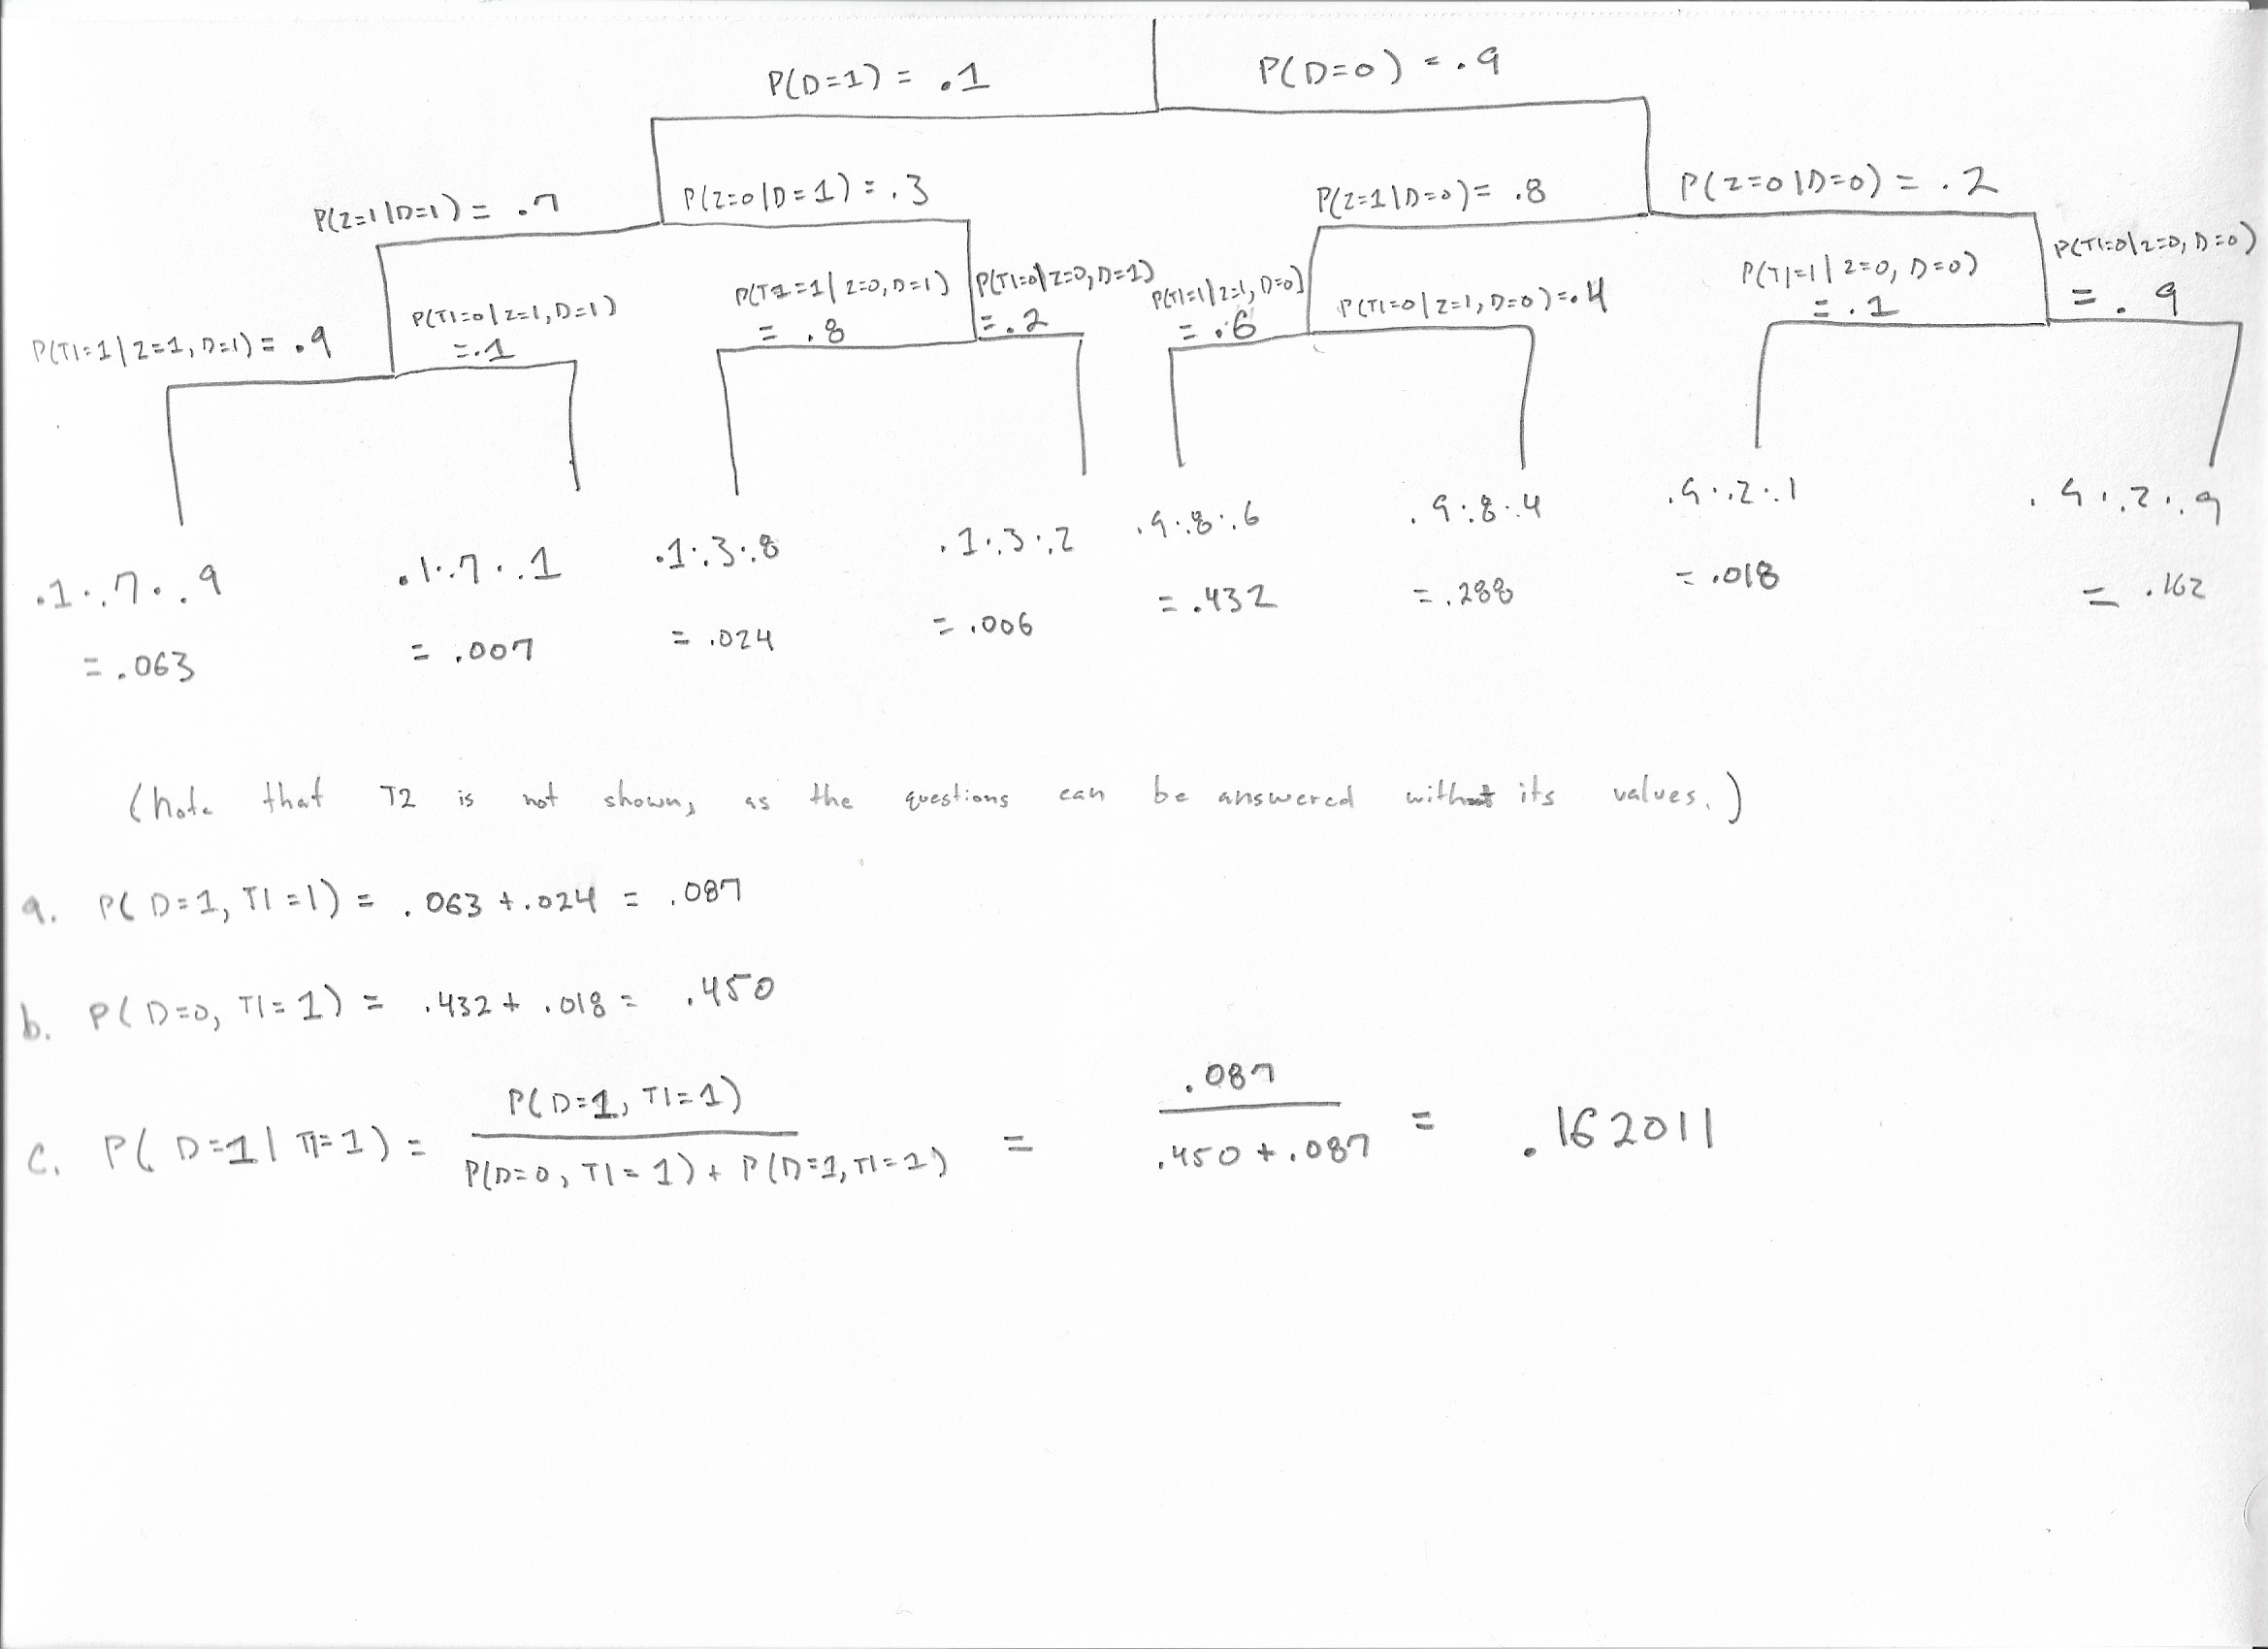 P(D=1) = .1 P(D=0) = .9
P(Z=1|D=1) = .7 P(Z=0|D=1) = .3 P(Z=1|D=0) = .8 P(Z=0|D=0) = .2
P(T1=1|Z=1, D=1) = .9 P(T1=0|Z=1, D=1) = .1 P(T1=1|Z=0, D=1) = .8 P(T1=0|Z=0, D=1) = .2 P(T1=1|Z=1, D=0) = .6 P(T1=0|Z=1, D=0) = .4 P(T1=1|Z=0, D=0) = .1 P(T1=0|Z=0, D=0) = .9
.1·.7·.9 .1·.7·.1 .1·.3·.8 .1·.3·.2 .9·.8·.6 .9·.8·.4 .9·.2·.1 .9·.2·.9
= .063 = .007 = .024 = .006 = .432 = .288 = .018 = .162
(Note that T2 is not shown, as the questions can be answered without its values.)
a. P(D=1, T1=1) = .063 + .024 = .087
b. P(D=0, T1=1) = .432 + .018 = .450
c. P(D=1|T1=1) = P(D=1, T1=1) / P(D=0, T1=1) + P(D=1, T1=1) = .087 / .450 + .087 = .162011